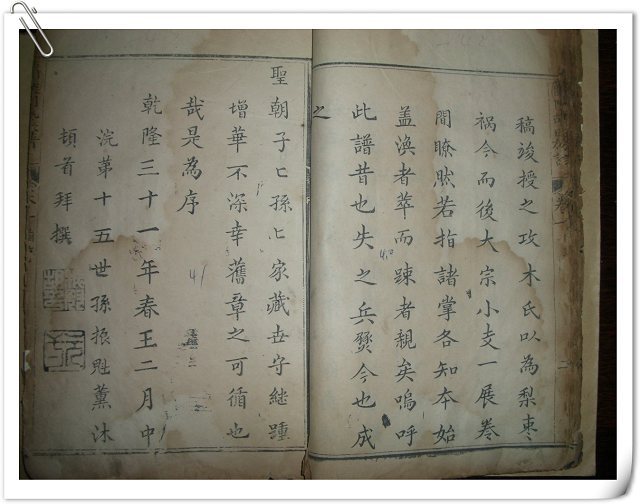 稿竣授之攻木氏以為梨棗
祸今而後大宗小支一展卷
間瞭然若指諸掌各知本始
盖渙者萃而踈者親矣嗚呼
此譜昔也失之兵燹今也成
之
聖朝子匕孫匕家藏世守継踵
增華不深幸舊章之可循也
哉是為序
乾隆三十一年春王二月中
浣第十五世孫振薰沐
頓首拜撰